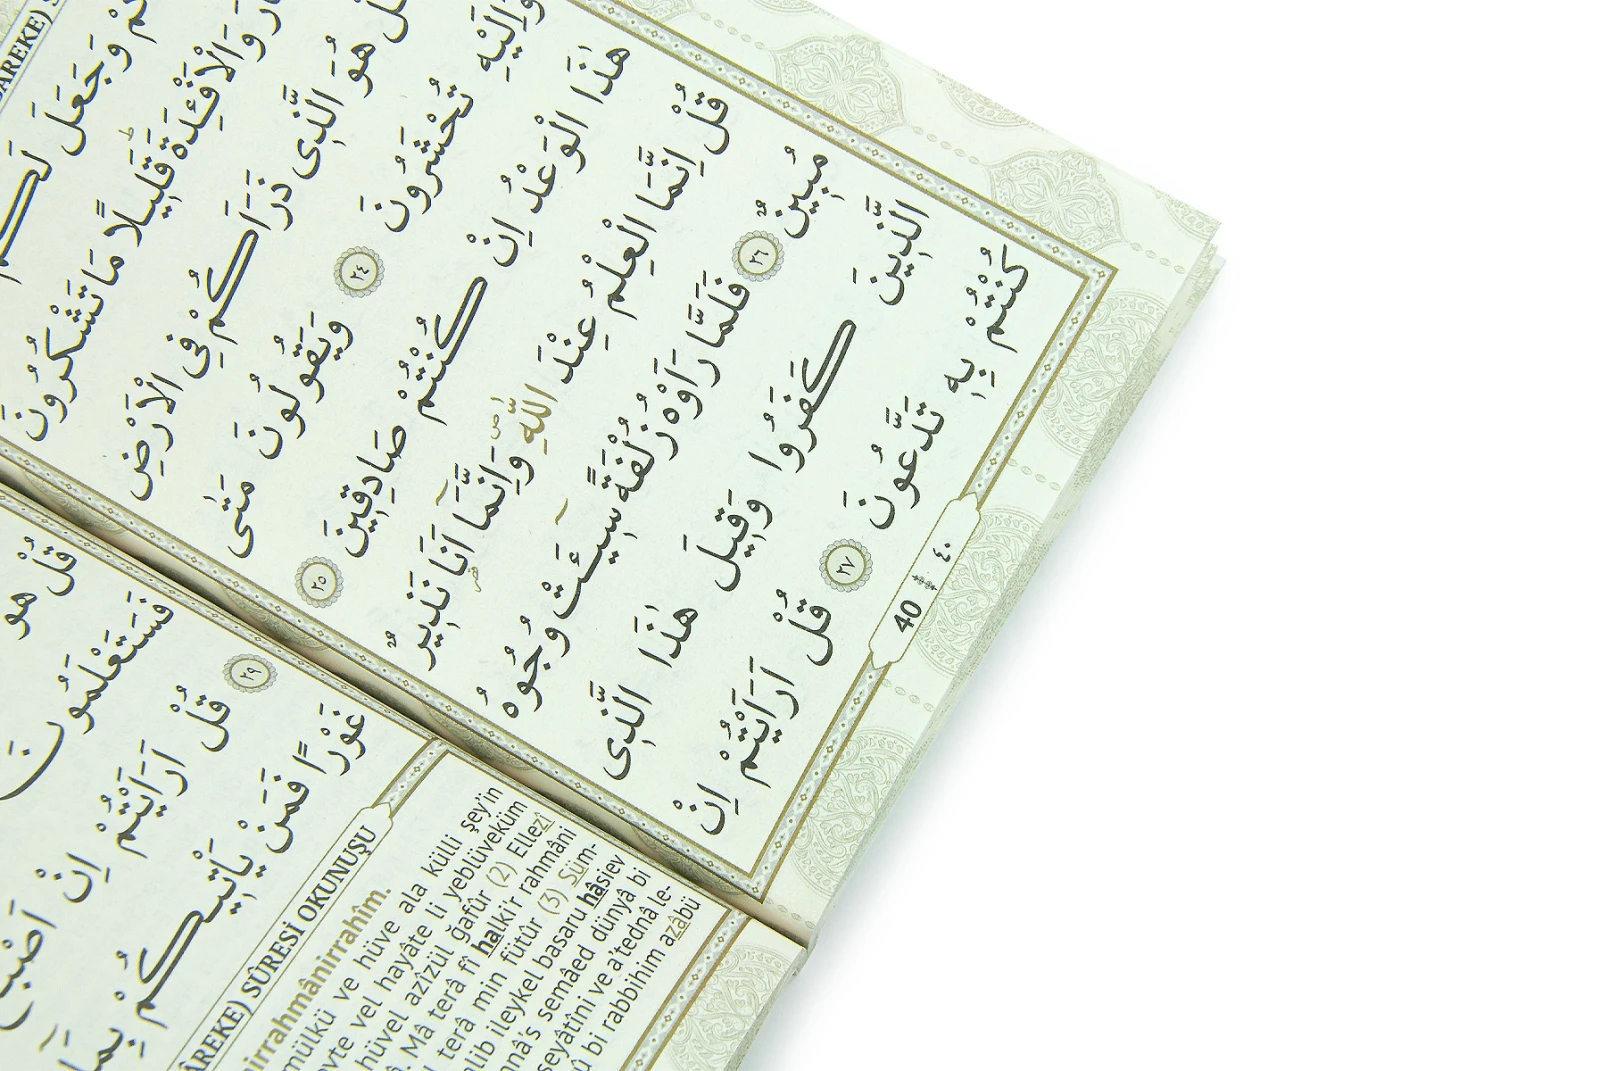 وَجَعَلَ لَكُمُ
وَالْاَفْـِٔدَةَ قَلِيلًا مَا تَشْكُرُونَ
هُوَ الَّذِى ذَرَاَكُمْ فِى الْاَرْضِ
وَاِلَيْهِ تُحْشَرُونَ ٢٤ وَيَقُولُونَ مَتٰى
هٰذَا الْوَعْدُ اِنْ كُنْتُمْ صَادِقِينَ ٢٥
قُلْ اِنَّمَا الْعِلْمُ عِنْدَ اللّٰهِ وَاِنَّمَا اَنَا نَذِيرٌ
مُبِينٌ ٢٦ فَلَمَّا رَاَوْهُ زُلْفَةً سِيـَٔتْ وُجُوهُ
الَّذِينَ كَفَرُوا وَقِيلَ هٰذَا الَّذِى
كُنْتُمْ بِهِ تَدَّعُونَ ٢٧ قُلْ اَرَاَيْتُمْ اِنْ
40 ٤٠
قُلْ هُوَ
فَسَتَعْلَمُونَ
٢٩ قُلْ اَرَاَيْتُمْ اِنْ اَصْبَحَ
غَوْرًا فَمَنْ يَاْتِيكُمْ بِمَاءٍ
SÛRESİ OKUNUŞU
mülkü ve hüve ala külli şey'in
vel hayâte li yeblüveküm
hüvel azîzül ğafûr (2) Ellezî
Mâ terâ fî halkı'r rahmâni
terâ min fütûr (3) Süm-
ileykel basaru hâsiev
semâed dünyâ bi
ve a'tednâ le-
bi rabbihim azâbü